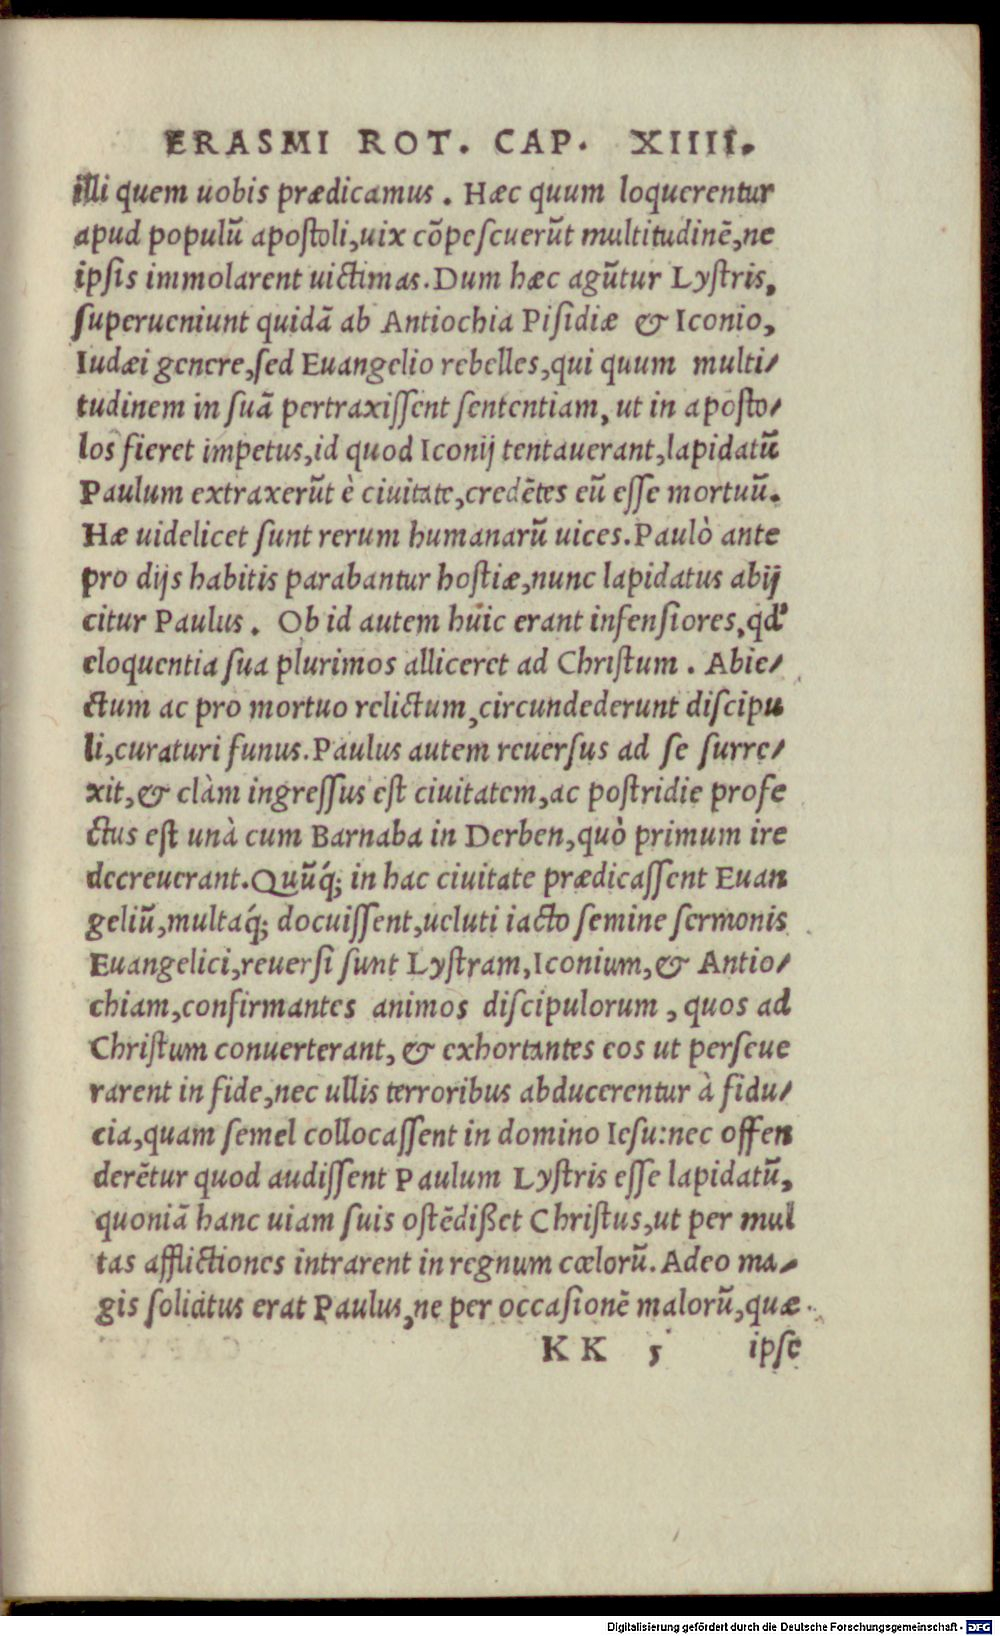 ERASMI ROT. CAP. XIIII.
illi quem uobis prædicamus . Hæc quum loquerentur
apud populū apoſtoli,uix cōpeſcuerūt multitudinē,ne
ipſis immolarent uictimas.Dum hæc agūtur Lyſtris,
ſuperueniunt quidā ab Antiochia Piſidiæ & Iconio,
Iudæi genere,ſed Euangelio rebelles,qui quum multi/
tudinem in ſuā pertraxiſſent ſententiam, ut in apoſto/
los fieret impetus,id quod Iconij tentauerant,lapidatū
Paulum extraxerūt è ciuitate,credētes eū eſſe mortuū.
Hæ uidelicet ſunt rerum humanarū uices.Paulò ante
pro dijs habitis parabantur hoſtiæ,nunc lapidatus abij
citur Paulus . Ob id autem huic erant infenſiores,qd'
eloquentia ſua plurimos alliceret ad Chriſtum . Abie/
ctum ac pro mortuo relictum,circundederunt diſcipu
li,curaturi funus.Paulus autem reuerſus ad ſe ſurre/
xit,& clàm ingreſſus eſt ciuitatem,ac poſtridie profe
ctus eſt unà cum Barnaba in Derben,quò primum ire
decreuerant.Quūq́; in hac ciuitate prædicaſſent Euan
geliū,multaq́; docuiſſent,ueluti iacto ſemine ſermonis
Euangelici,reuerſi ſunt Lyſtram,Iconium,& Antio/
chiam,confirmantes animos diſcipulorum , quos ad
Chriſtum conuerterant, & exhortantes eos ut perſeue
rarent in fide,nec ullis terroribus abducerentur à fidu/
cia,quam ſemel collocaſſent in domino Ieſu:nec offen
derētur quod audiſſent Paulum Lyſtris eſſe lapidatū,
quoniā hanc uiam ſuis oſtēdißet Chriſtus,ut per mul
tas afflictiones intrarent in regnum cœlorū. Adeo ma/
gis ſolicitus erat Paulus,ne per occaſionē malorū,quæ
KK 5 ipſe
Digitalisierung gefördert durch die Deutsche Forschungsgemeinschaft - DFG